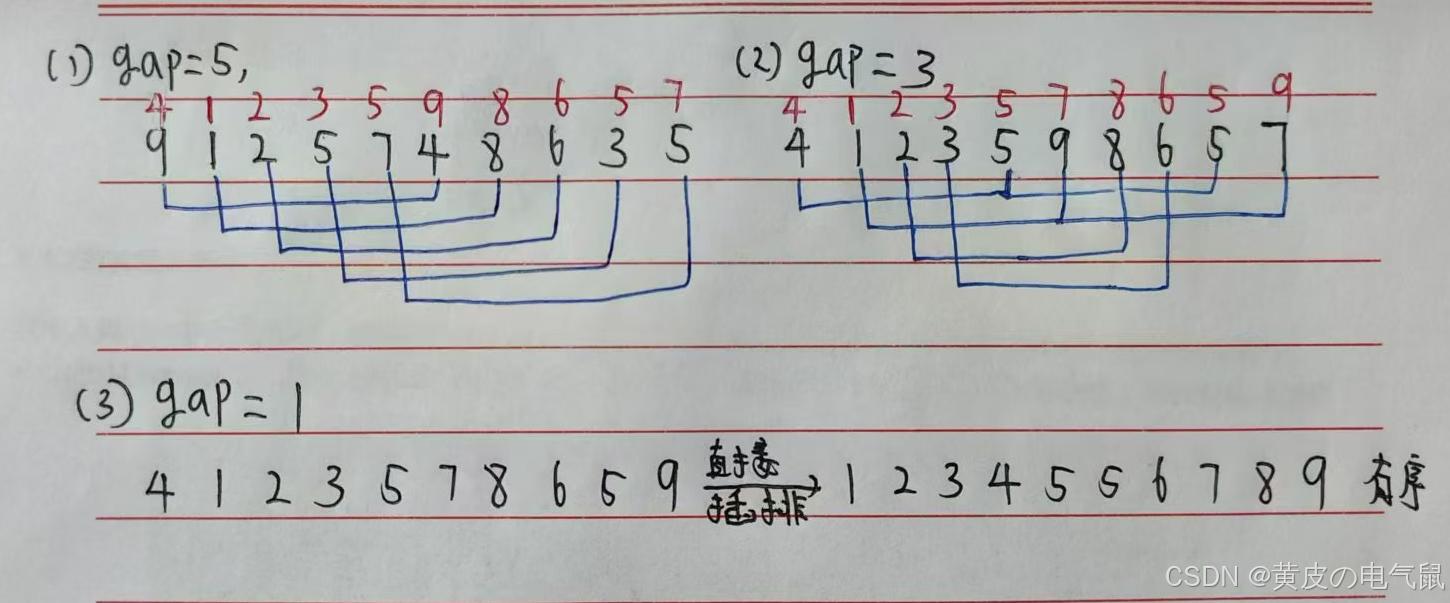 (1) gap=5,
4 1 2 3 5 9 8 6 5 7
9 1 2 5 7 4 8 6 3 5
(2) gap=3
4 1 2 3 5 7 8 6 5 9
4 1 2 3 5 9 8 6 5 7
(3) gap=1
4 1 2 3 5 7 8 6 5 9 直接插排 1 2 3 4 5 5 6 7 8 9 有序
CSDN @黄皮の电气鼠